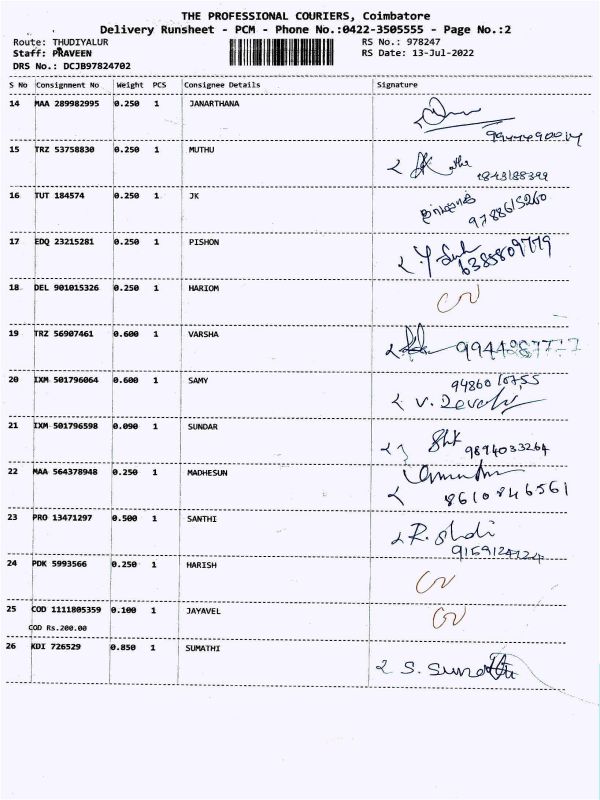 THE PROFESSIONAL COURIERS, Coimbatore
Delivery Runsheet - PCM - Phone No.:0422-3505555 - Page No.:2
Route: THUDIYALUR RS No.: 978247
Staff: PRAVEEN RS Date: 13-Jul-2022
DRS No.: DCJB97824702
S No Consignment No Weight PCS Consignee Details Signature
14 MAA 289982995 0.250 1 JANARTHANA
15 TRZ 53758830 0.250 1 MUTHU
16 TUT 184574 0.250 1 JK
9788615260
17 EDQ 23215281 0.250 1 PISHON
6385809779
18 DEL 901015326 0.250 1 HARIOM
19 TRZ 56907461 0.600 1 VARSHA
20 IXM 501796064 0.600 1 SAMY
V. Devaki
21 IXM 501796598 0.090 1 SUNDAR
9894033264
22 MAA 564378948 0.250 1 MADHESUN
8610846561
23 PRO 13471297 0.500 1 SANTHI
24 PDK 5993566 0.250 1 HARISH
25 COD 1111805359 0.100 1 JAYAVEL
COD Rs.200.00
26 KDI 726529 0.850 1 SUMATHI